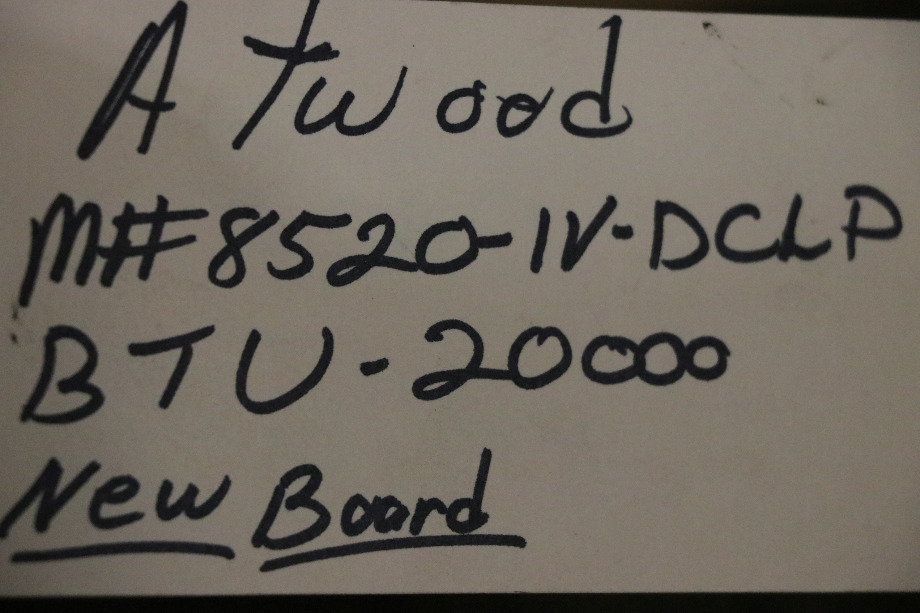 Atwood
M# 8520-IV-DCLP
BTU - 20000
New Board